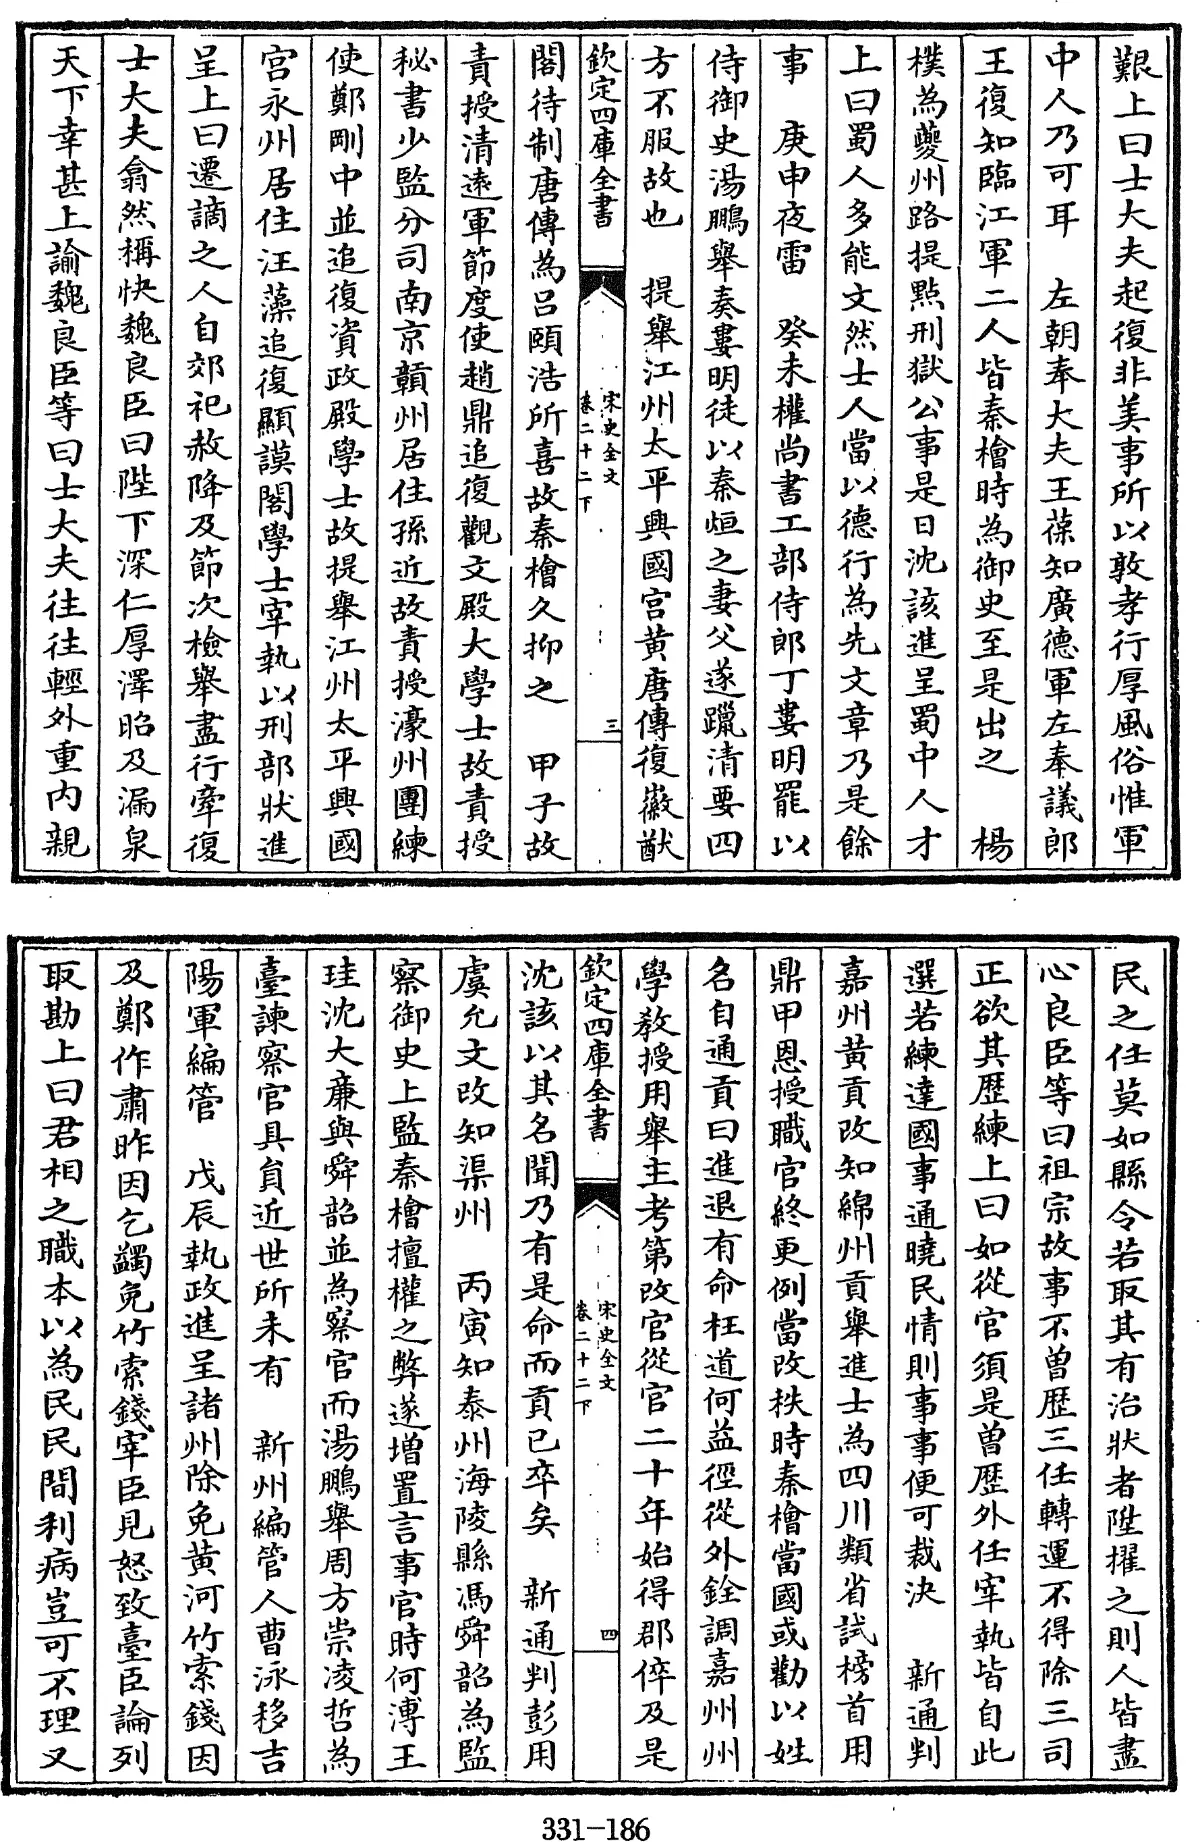 艱上曰士大夫起復非美事所以敦孝行厚風俗惟軍
中人乃可耳　左朝奉大夫王葆知廣德軍左奉議郎
王復知臨江軍二人皆秦檜時為御史至是出之　楊
樸為夔州路提㸃刑獄公事是日沈該進呈蜀中人才
上曰蜀人多能文然士人當以德行為先文章乃是餘
事　庚申夜雷　癸未權尚書工部侍郎丁婁明罷以
侍御史湯鵬舉奏婁明徒以秦烜之妻父遂躐清要四
方不服故也　提舉江州太平興國宫黄唐傳復徽猷
欽定四庫全書
宋史全文
卷二十二下
三
閣待制唐傳為吕頤浩所喜故秦檜久抑之　甲子故
責授清逺軍節度使趙鼎追復觀文殿大學士故責授
秘書少監分司南京贛州居住孫近故責授濠州團練
使鄭剛中並追復資政殿學士故提舉江州太平興國
宫永州居住汪藻追復顯謨閣學士宰執以刑部狀進
呈上曰遷謫之人自郊祀赦降及節次檢舉盡行牽復
士大夫翕然稱快魏良臣曰陛下深仁厚澤昭及漏泉
天下幸甚上諭魏良臣等曰士大夫往往輕外重内親
民之任莫如縣令若取其有治狀者陞擢之則人皆盡
心良臣等曰祖宗故事不曽歴三任轉運不得除三司
正欲其歴練上曰如從官須是曽歴外任宰執皆自此
選若練達國事通曉民情則事事便可裁決　新通判
嘉州黄貢改知綿州貢舉進士為四川類省試榜首用
鼎甲恩授職官終更例當改秩時秦檜當國或勸以姓
名自通貢曰進退有命枉道何益徑從外銓調嘉州州
學教授用舉主考第改官從官二十年始得郡倅及是
欽定四庫全書
宋史全文
卷二十二下
四
沈該以其名聞乃有是命而貢已卒矣　新通判彭用
虞允文改知渠州　丙寅知泰州海陵縣馮舜韶為監
察御史上監秦檜擅權之弊遂増置言事官時何溥王
珪沈大亷與舜韶並為察官而湯鵬舉周方崇凌哲為
臺諫察官具員近世所未有　新州編管人曹泳移吉
陽軍編管　戊辰執政進呈諸州除免黄河竹索錢因
及鄭作肅昨因乞蠲免竹索錢宰臣見怒致臺臣論列
取勘上曰君相之職本以為民民間利病豈可不理又
331-186